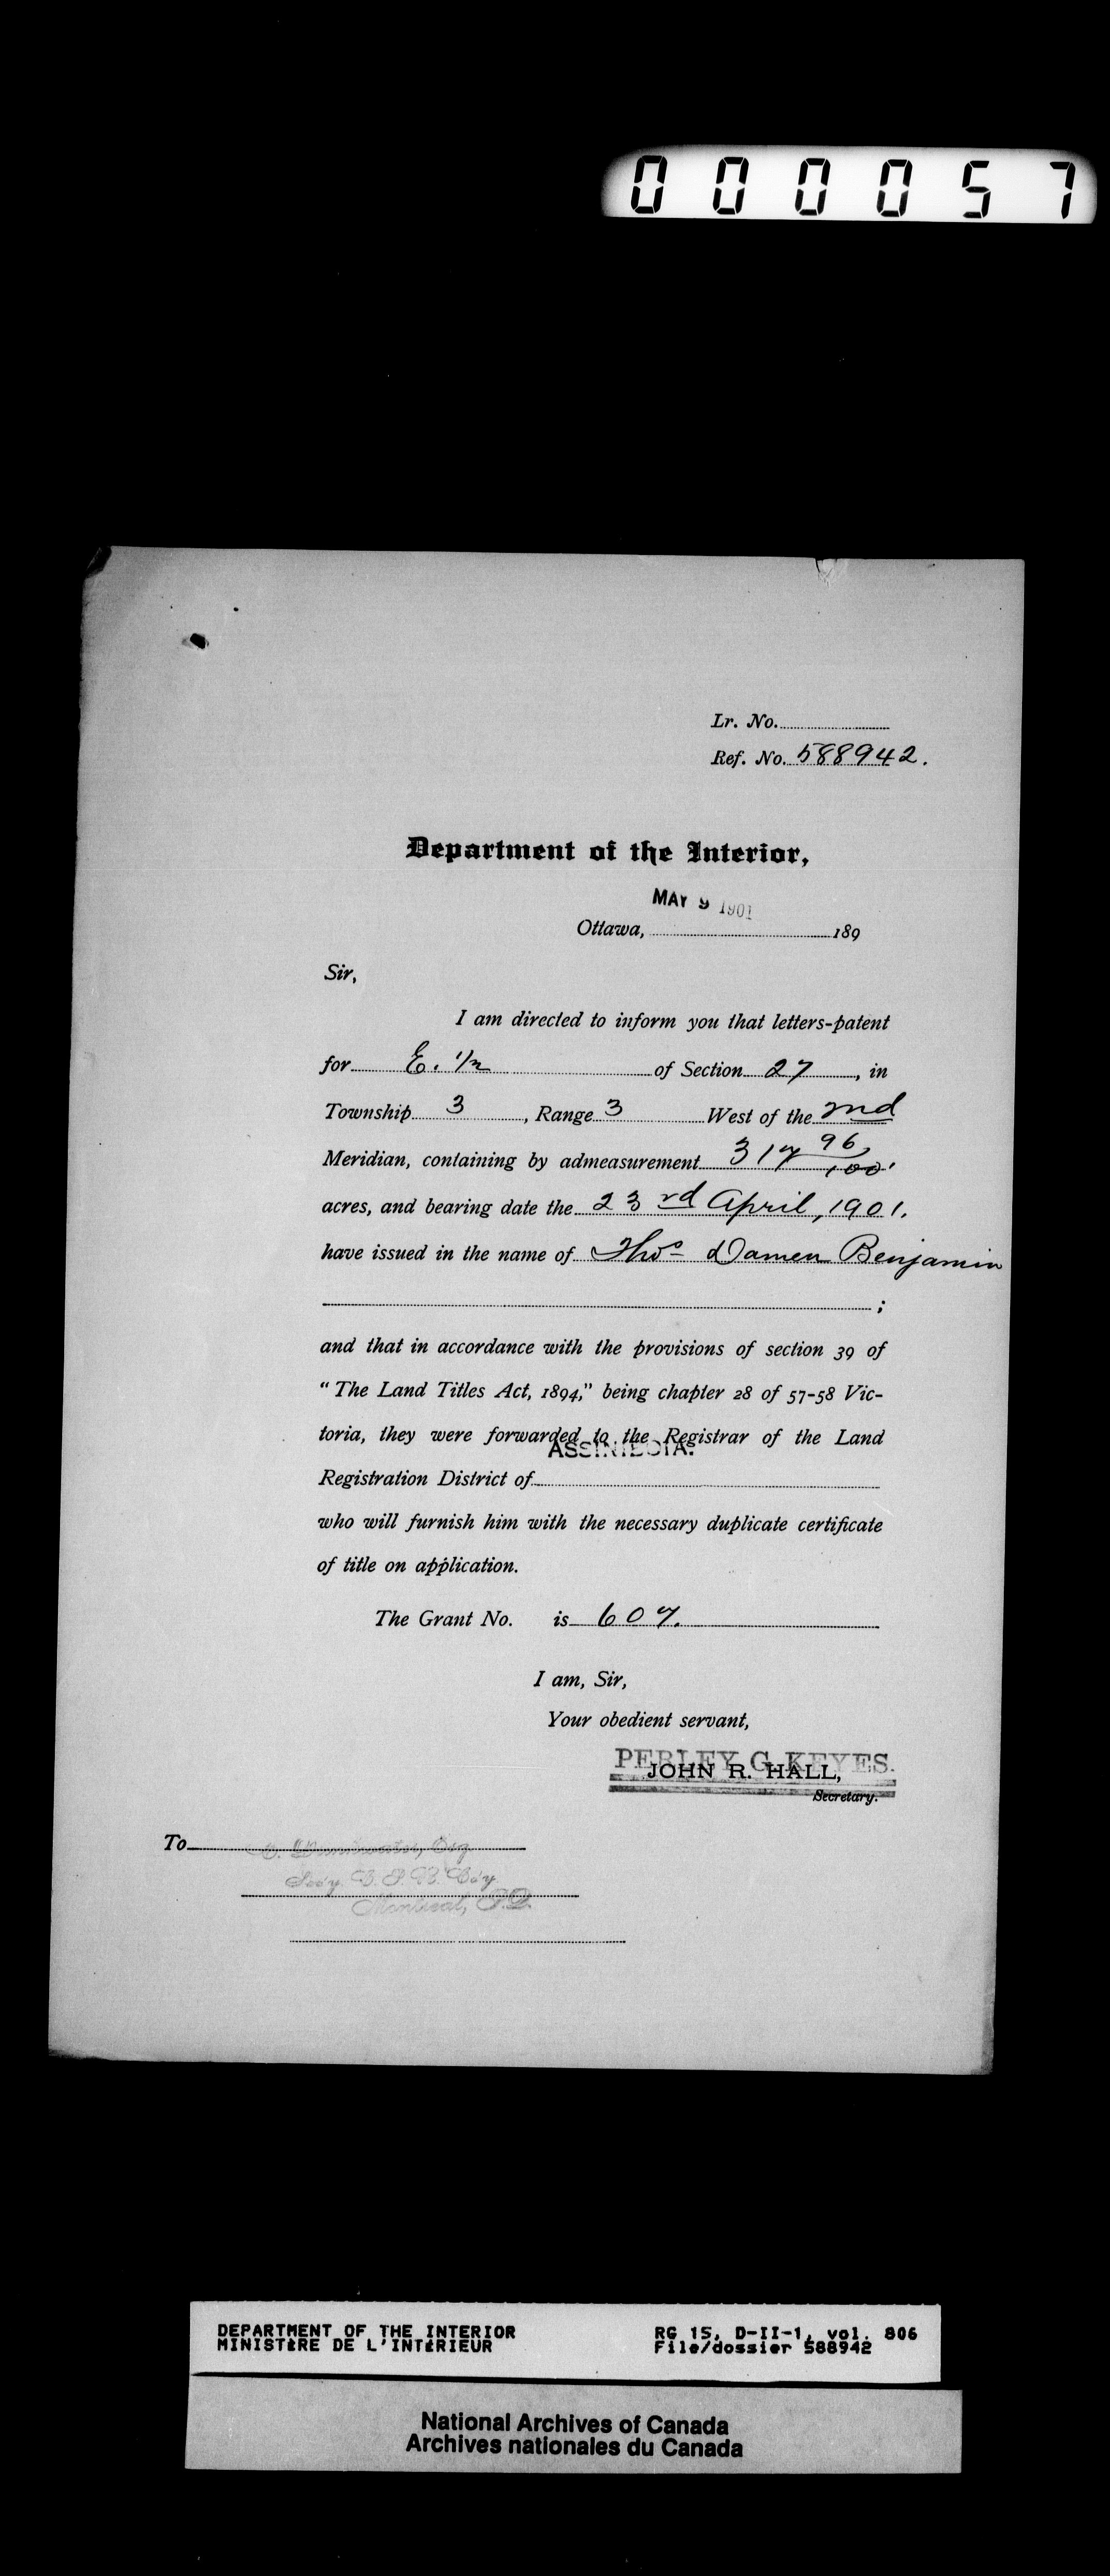 000057
Lr. No.
Ref. No. 588942.
Department of the Interior,
MAY 9 1901
Ottawa, 189
Sir,
I am directed to inform you that letters-patent
for E. 1/2 of Section 27, in
Township 3, Range 3 West of the 2nd
Meridian, containing by admeasurement 317 96/100
acres, and bearing date the 23rd April, 1901.
have issued in the name of Thos Damen Benjamin
;
and that in accordance with the provisions of section 39 of
"The Land Titles Act, 1894," being chapter 28 of 57-58 Vic-
toria, they were forwarded to the Registrar of the Land
ASSINIBOIA.
Registration District of
who will furnish him with the necessary duplicate certificate
of title on application.
The Grant No. is 607.
I am, Sir,
Your obedient servant,
PERLEY G. KEYES.
JOHN R. HALL,
Secretary.
To C. Drinkwater, Esq
Sec'y C. P. R. Co'y
Montreal, P.Q.
DEPARTMENT OF THE INTERIOR RG 15, D-II-1, vol. 806
MINISTÈRE DE L'INTÉRIEUR File/dossier 588942
National Archives of Canada
Archives nationales du Canada